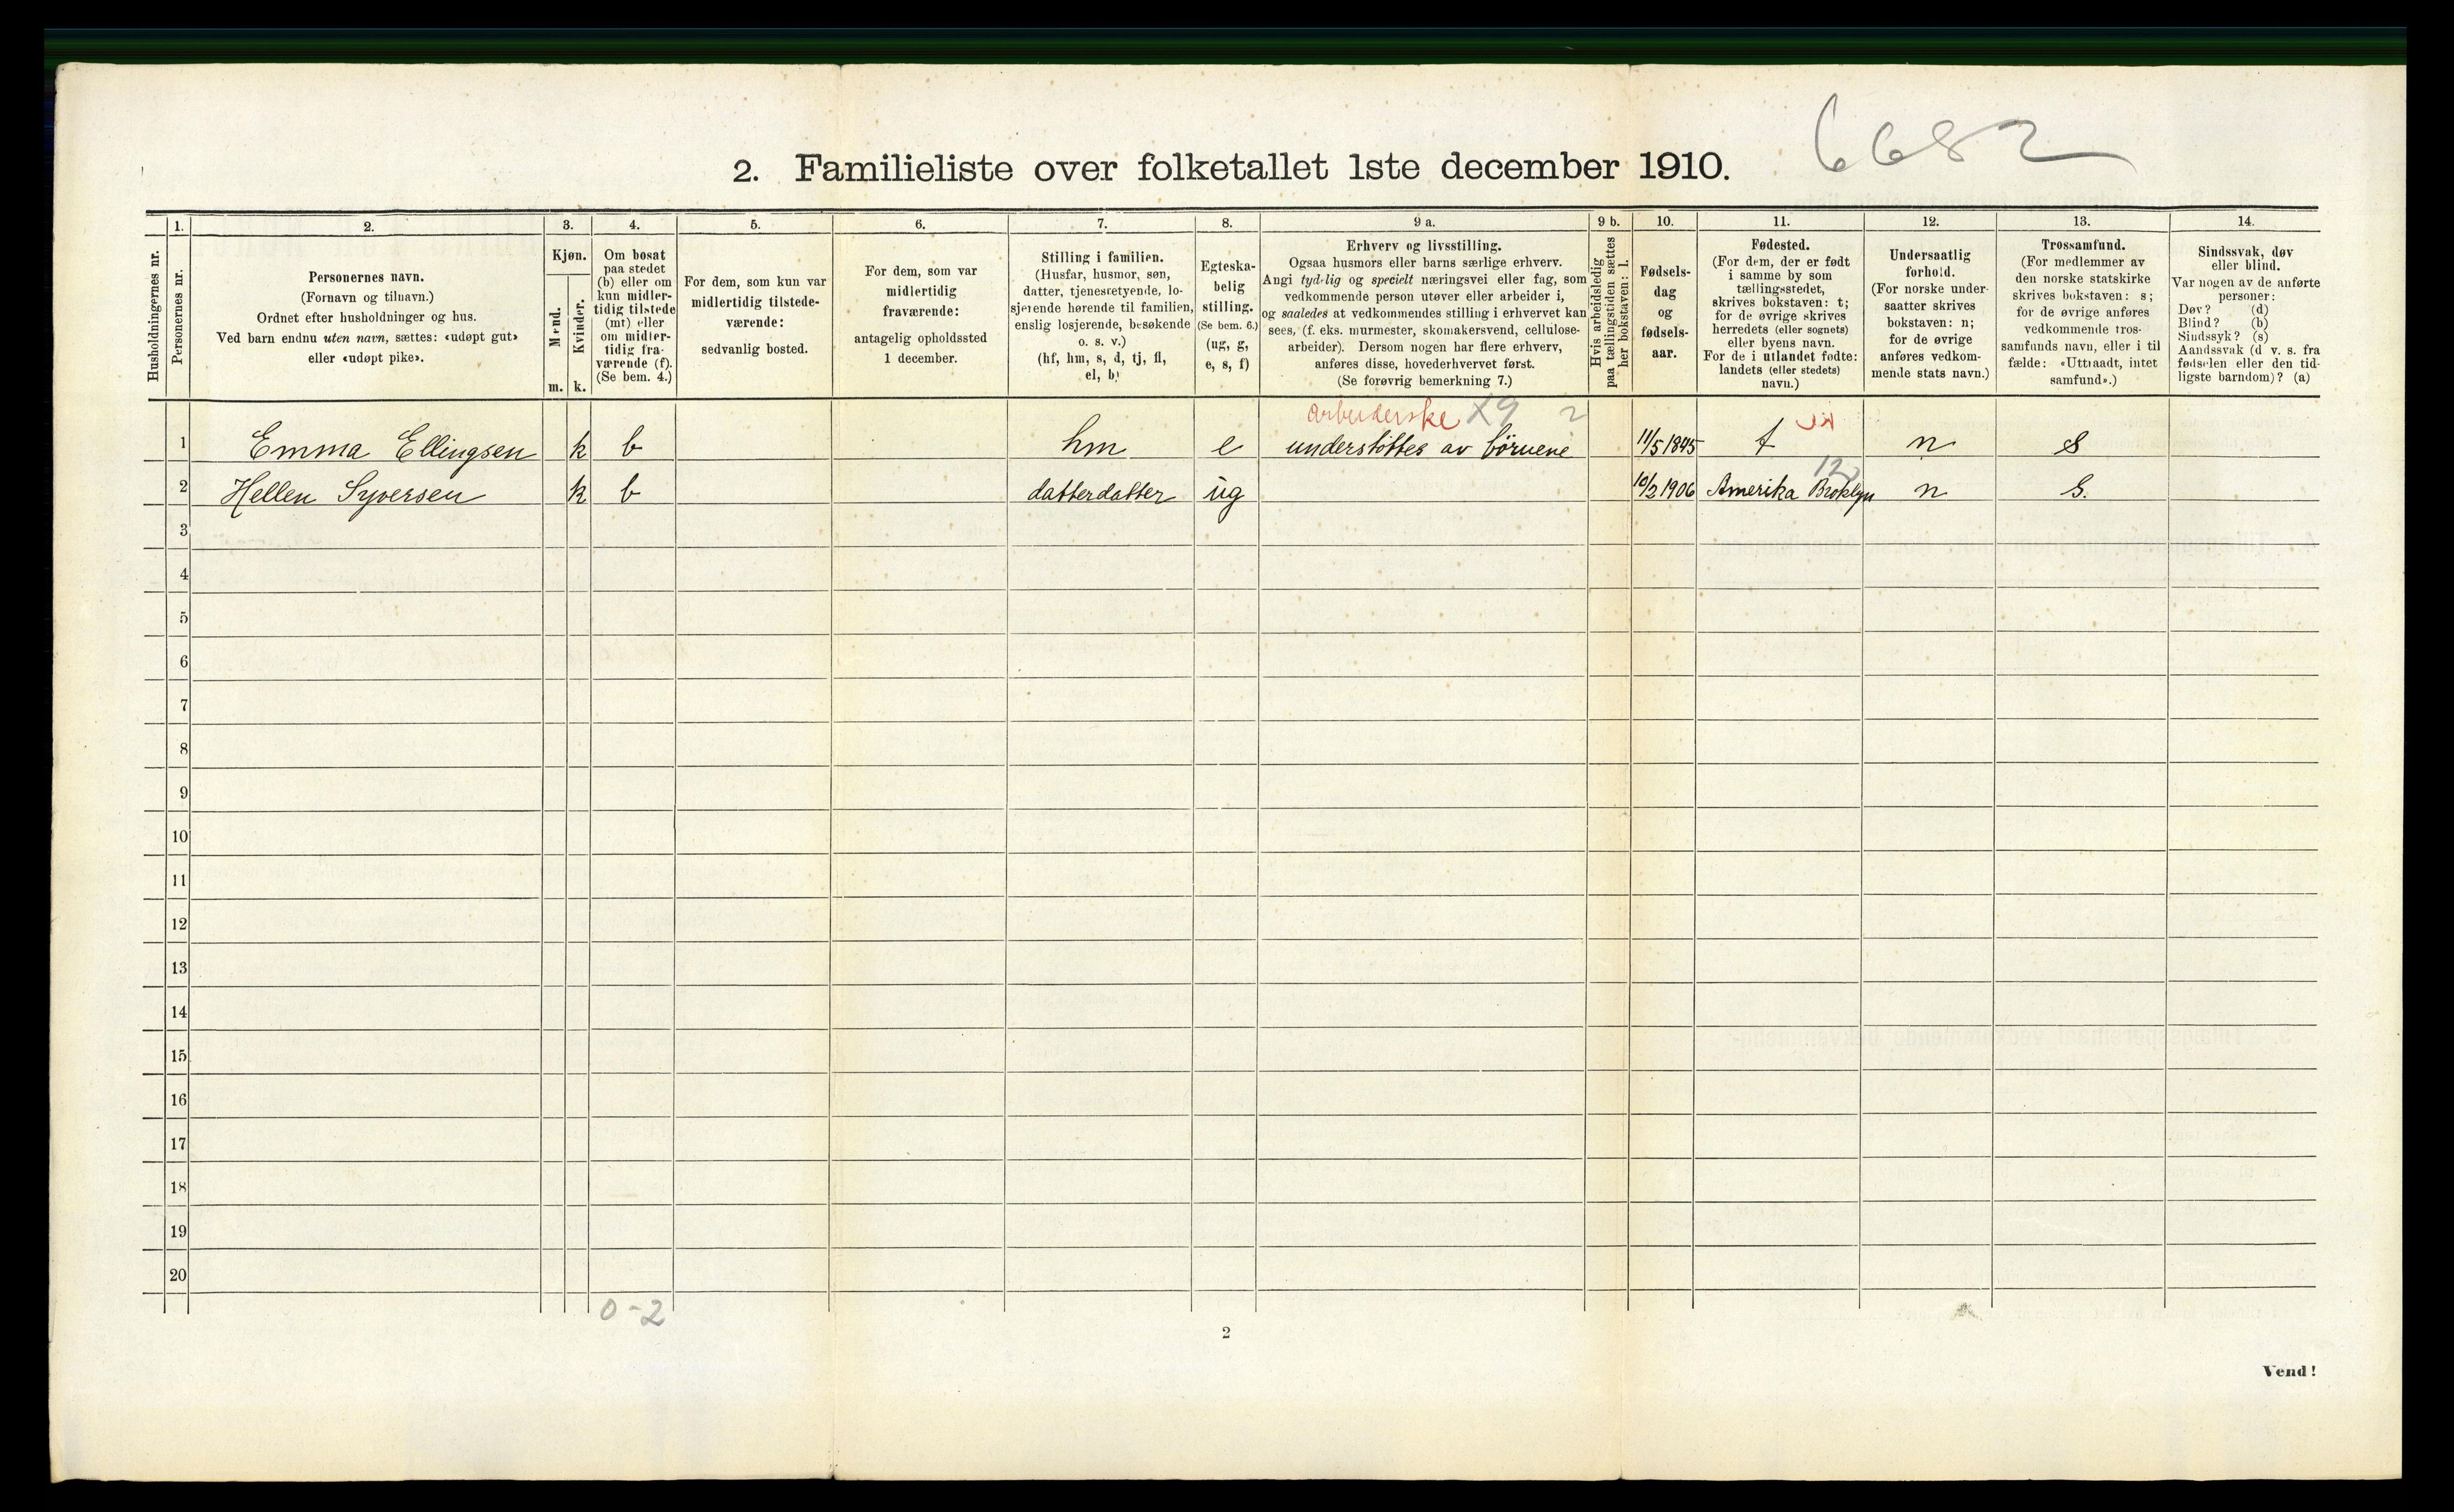 6682
2. Familieliste over folketallet 1ste december 1910.
Husholdningernes nr.
1.
Personernes nr.
2.
Personernes navn.
(Fornavn og tilnavn.)
Ordnet efter husholdninger og hus.
Ved barn endnu uten navn, sættes: «udøpt gut»
eller «udøpt pike».
3.
Kjøn.
Mænd.
Kvinder.
m. k.
4.
Om bosat
paa stedet
(b) eller om
kun midler-
tidig tilstede
(mt) eller
om midler-
tidig fra-
værende (f).
(Se bem. 4.)
5.
For dem, som kun var
midlertidig tilstede-
værende:
sedvanlig bosted.
6.
For dem, som var
midlertidig
fraværende:
antagelig opholdssted
1 december.
7.
Stilling i familien.
(Husfar, husmor, søn,
datter, tjenestetyende, lo-
sjerende hørende til familien,
enslig losjerende, besøkende
o. s. v.)
(hf, hm, s, d, tj, fl,
el, b)
8.
Egteska-
belig
stilling.
(Se bem. 6.)
(ug, g,
e, s, f)
9 a.
Erhverv og livsstilling.
Ogsaa husmors eller barns særlige erhverv.
Angi tydelig og specielt næringsvei eller fag, som
vedkommende person utøver eller arbeider i,
og saaledes at vedkommendes stilling i erhvervet kan
sees, (f. eks. murmester, skomakersvend, cellulose-
arbeider). Dersom nogen har flere erhverv,
anføres disse, hovederhvervet først.
(Se forøvrig bemerkning 7.)
9 b.
Hvis arbeidsledig
paa tællingstiden sættes
her bokstaven: l.
10.
Fødsels-
dag
og
fødsels-
aar.
11.
Fødested.
(For dem, der er født
i samme by som
tællingsstedet,
skrives bokstaven: t;
for de øvrige skrives
herredets (eller sognets)
eller byens navn.
For de i utlandet fødte:
landets (eller stedets)
navn.)
12.
Undersaatlig
forhold.
(For norske under-
saatter skrives
bokstaven: n;
for de øvrige
anføres vedkom-
mende stats navn.)
13.
Trossamfund.
(For medlemmer av
den norske statskirke
skrives bokstaven: s;
for de øvrige anføres
vedkommende tros-
samfunds navn, eller i til-
fælde: «Uttraadt, intet
samfund».)
14.
Sindssvak, døv
eller blind.
Var nogen av de anførte
personer:
Døv? (d)
Blind? (b)
Sindssyk? (s)
Aandssvak (d. v. s. fra
fødselen eller den tid-
ligste barndom)? (a)
arbeiderske X9 2
1 Emma Ellingsen k b hm e understöttes av börnene 11/5 1845 t n s
12
2 Hellen Syversen k b datterdatter ug 10/2 1906 Amerika Broklyn n S.
3
4
5
6
7
8
9
10
11
12
13
14
15
16
17
18
19
20
0-2
2
Vend!